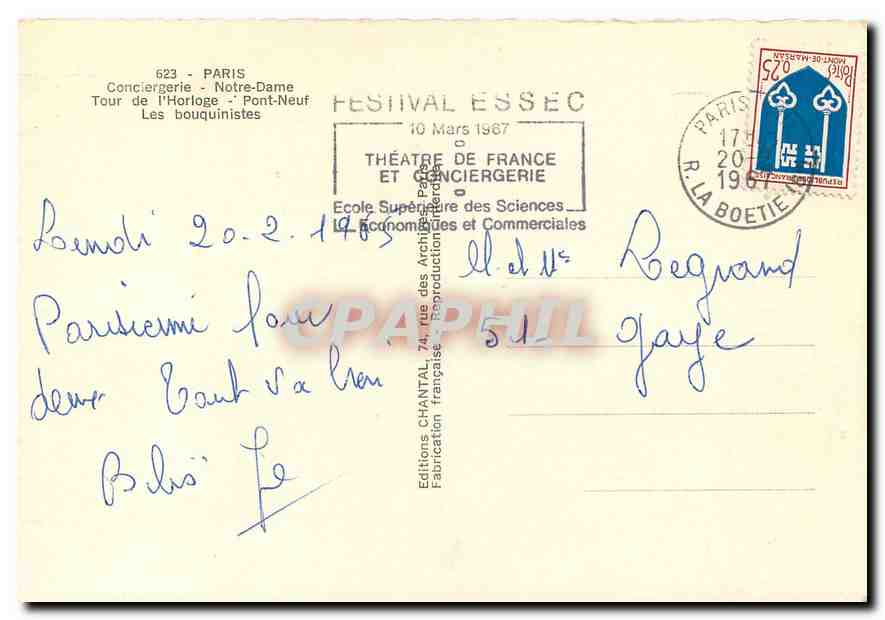 623 - PARIS
Conciergerie - Notre-Dame
Tour de l'Horloge - Pont-Neuf
Les bouquinistes
FESTIVAL ESSEC
10 Mars 1967
THÉATRE DE FRANCE
ET CONCIERGERIE
Ecole Supérieure des Sciences
Economiques et Commerciales
PARIS
17H
20-2
1967
R. LA BOETIE (8e)
POSTES
0,25
MONT-DE-MARSAN
REPUBLIQUE FRANÇAISE
Editions CHANTAL, 74, rue des Archives, Paris
Fabrication française - Reproduction interdite
Lundi 20-2-
Parisienne pour
deux Tout va bien
M. et Me Legrand
51- Gaye
CPAPHIL